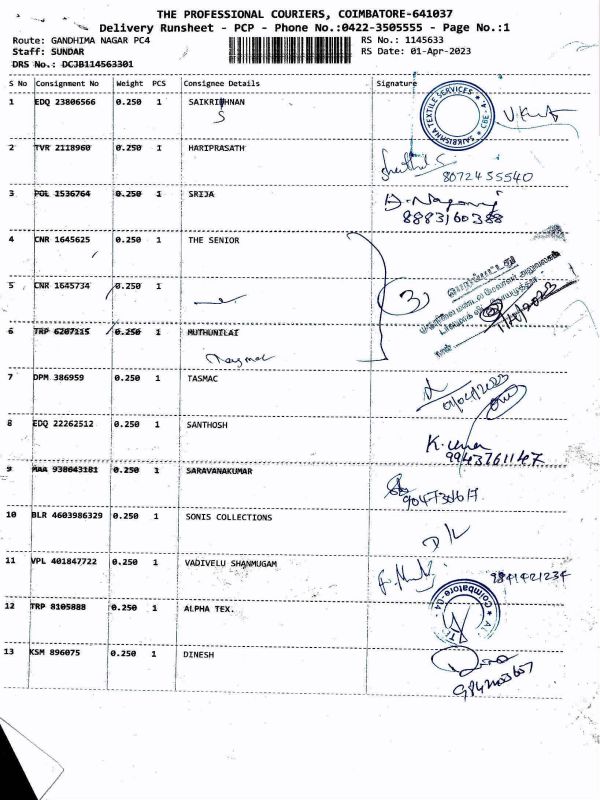 THE PROFESSIONAL COURIERS, COIMBATORE-641037
Delivery Runsheet - PCP - Phone No.:0422-3505555 - Page No.:1
Route: GANDHIMA NAGAR PC4 RS No.: 1145633
Staff: SUNDAR RS Date: 01-Apr-2023
DRS No.: DCJB114563301
S No Consignment No Weight PCS Consignee Details Signature
1 EDQ 23806566 0.250 1 SAIKRISHNAN
S
SAIKRISHNA TEXTILE SERVICES CBE-4.
2 TVR 2118960 0.250 1 HARIPRASATH
8072455540
3 POL 1536764 0.250 1 SRIJA
8883160388
4 CNR 1645625 0.250 1 THE SENIOR
5 CNR 1645734 0.250 1
3
1/4/2023
6 TRP 6207115 0.250 1 MUTHUNILAI
7 DPM 386959 0.250 1 TASMAC
01/04/2023
8 EDQ 22262512 0.250 1 SANTHOSH
9943761147
9 MAA 930643181 0.250 1 SARAVANAKUMAR
10 BLR 4603986329 0.250 1 SONIS COLLECTIONS
11 VPL 401847722 0.250 1 VADIVELU SHANMUGAM
9841421234
12 TRP 8105888 0.250 1 ALPHA TEX.
Coimbatore-04
13 KSM 896075 0.250 1 DINESH